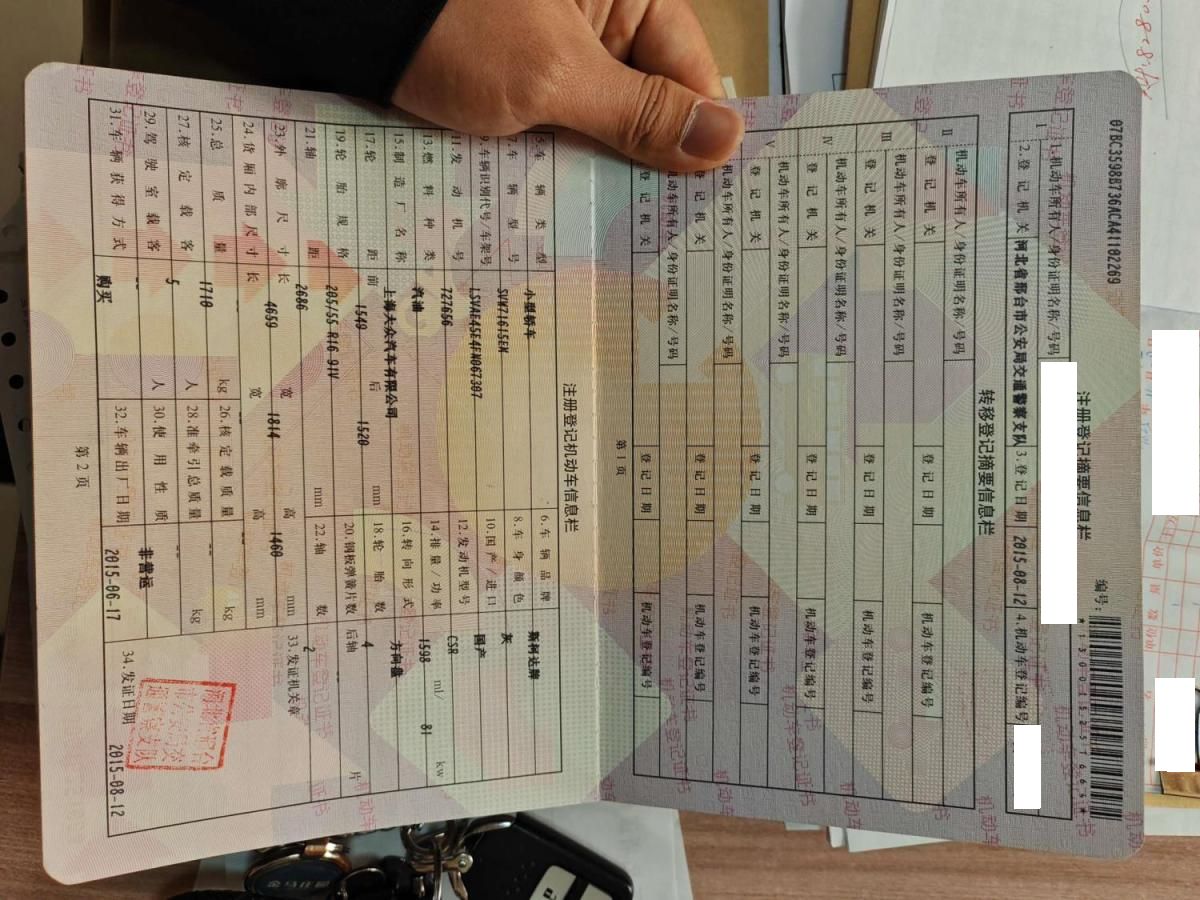 07BC3598B736ACA41102269
编号:
*130015251664*
注册登记摘要信息栏
I
1.机动车所有人/身份证明名称/号码
2.登记机关 河北省邢台市公安局交通警察支队 3.登记日期 2015-08-12 4.机动车登记编号
转移登记摘要信息栏
II 机动车所有人/身份证明名称/号码
登记机关 登记日期 机动车登记编号
III 机动车所有人/身份证明名称/号码
登记机关 登记日期 机动车登记编号
IV 机动车所有人/身份证明名称/号码
登记机关 登记日期 机动车登记编号
V 机动车所有人/身份证明名称/号码
登记机关 登记日期 机动车登记编号
机动车所有人/身份证明名称/号码
登记机关 登记日期 机动车登记编号
机动车所有人/身份证明名称/号码
登记机关 登记日期 机动车登记编号
第1页
注册登记机动车信息栏
5.车辆类型 小型轿车 6.车辆品牌 斯柯达牌
7.车辆型号 SVW71615EM 8.车身颜色 灰
9.车辆识别代号/车架号 LSVAE45E4FN067307 10.国产/进口 国产
11.发动机号 727656 12.发动机型号 CSR
13.燃料种类 汽油 14.排量/功率 1598 ml/ 81 kw
15.制造厂名称 上海大众汽车有限公司 16.转向形式 方向盘
17.轮距 前 1549 后 1520 mm 18.轮胎数 4
19.轮胎规格 205/55 R16 91V 20.钢板弹簧片数 后轴 -- 片
21.轴距 2686 mm 22.轴数 2
23.外廓尺寸 长 4659 宽 1814 高 1460 mm 33.发证机关章
24.货厢内部尺寸 长 宽 高 mm
25.总质量 1710 kg 26.核定载质量 -- kg
27.核定载客 5 人 28.准牵引总质量 -- kg
29.驾驶室载客 -- 人 30.使用性质 非营运
31.车辆获得方式 购买 32.车辆出厂日期 2015-06-17 34.发证日期 2015-08-12
河北省邢台
市公安局交
通警察支队
第2页